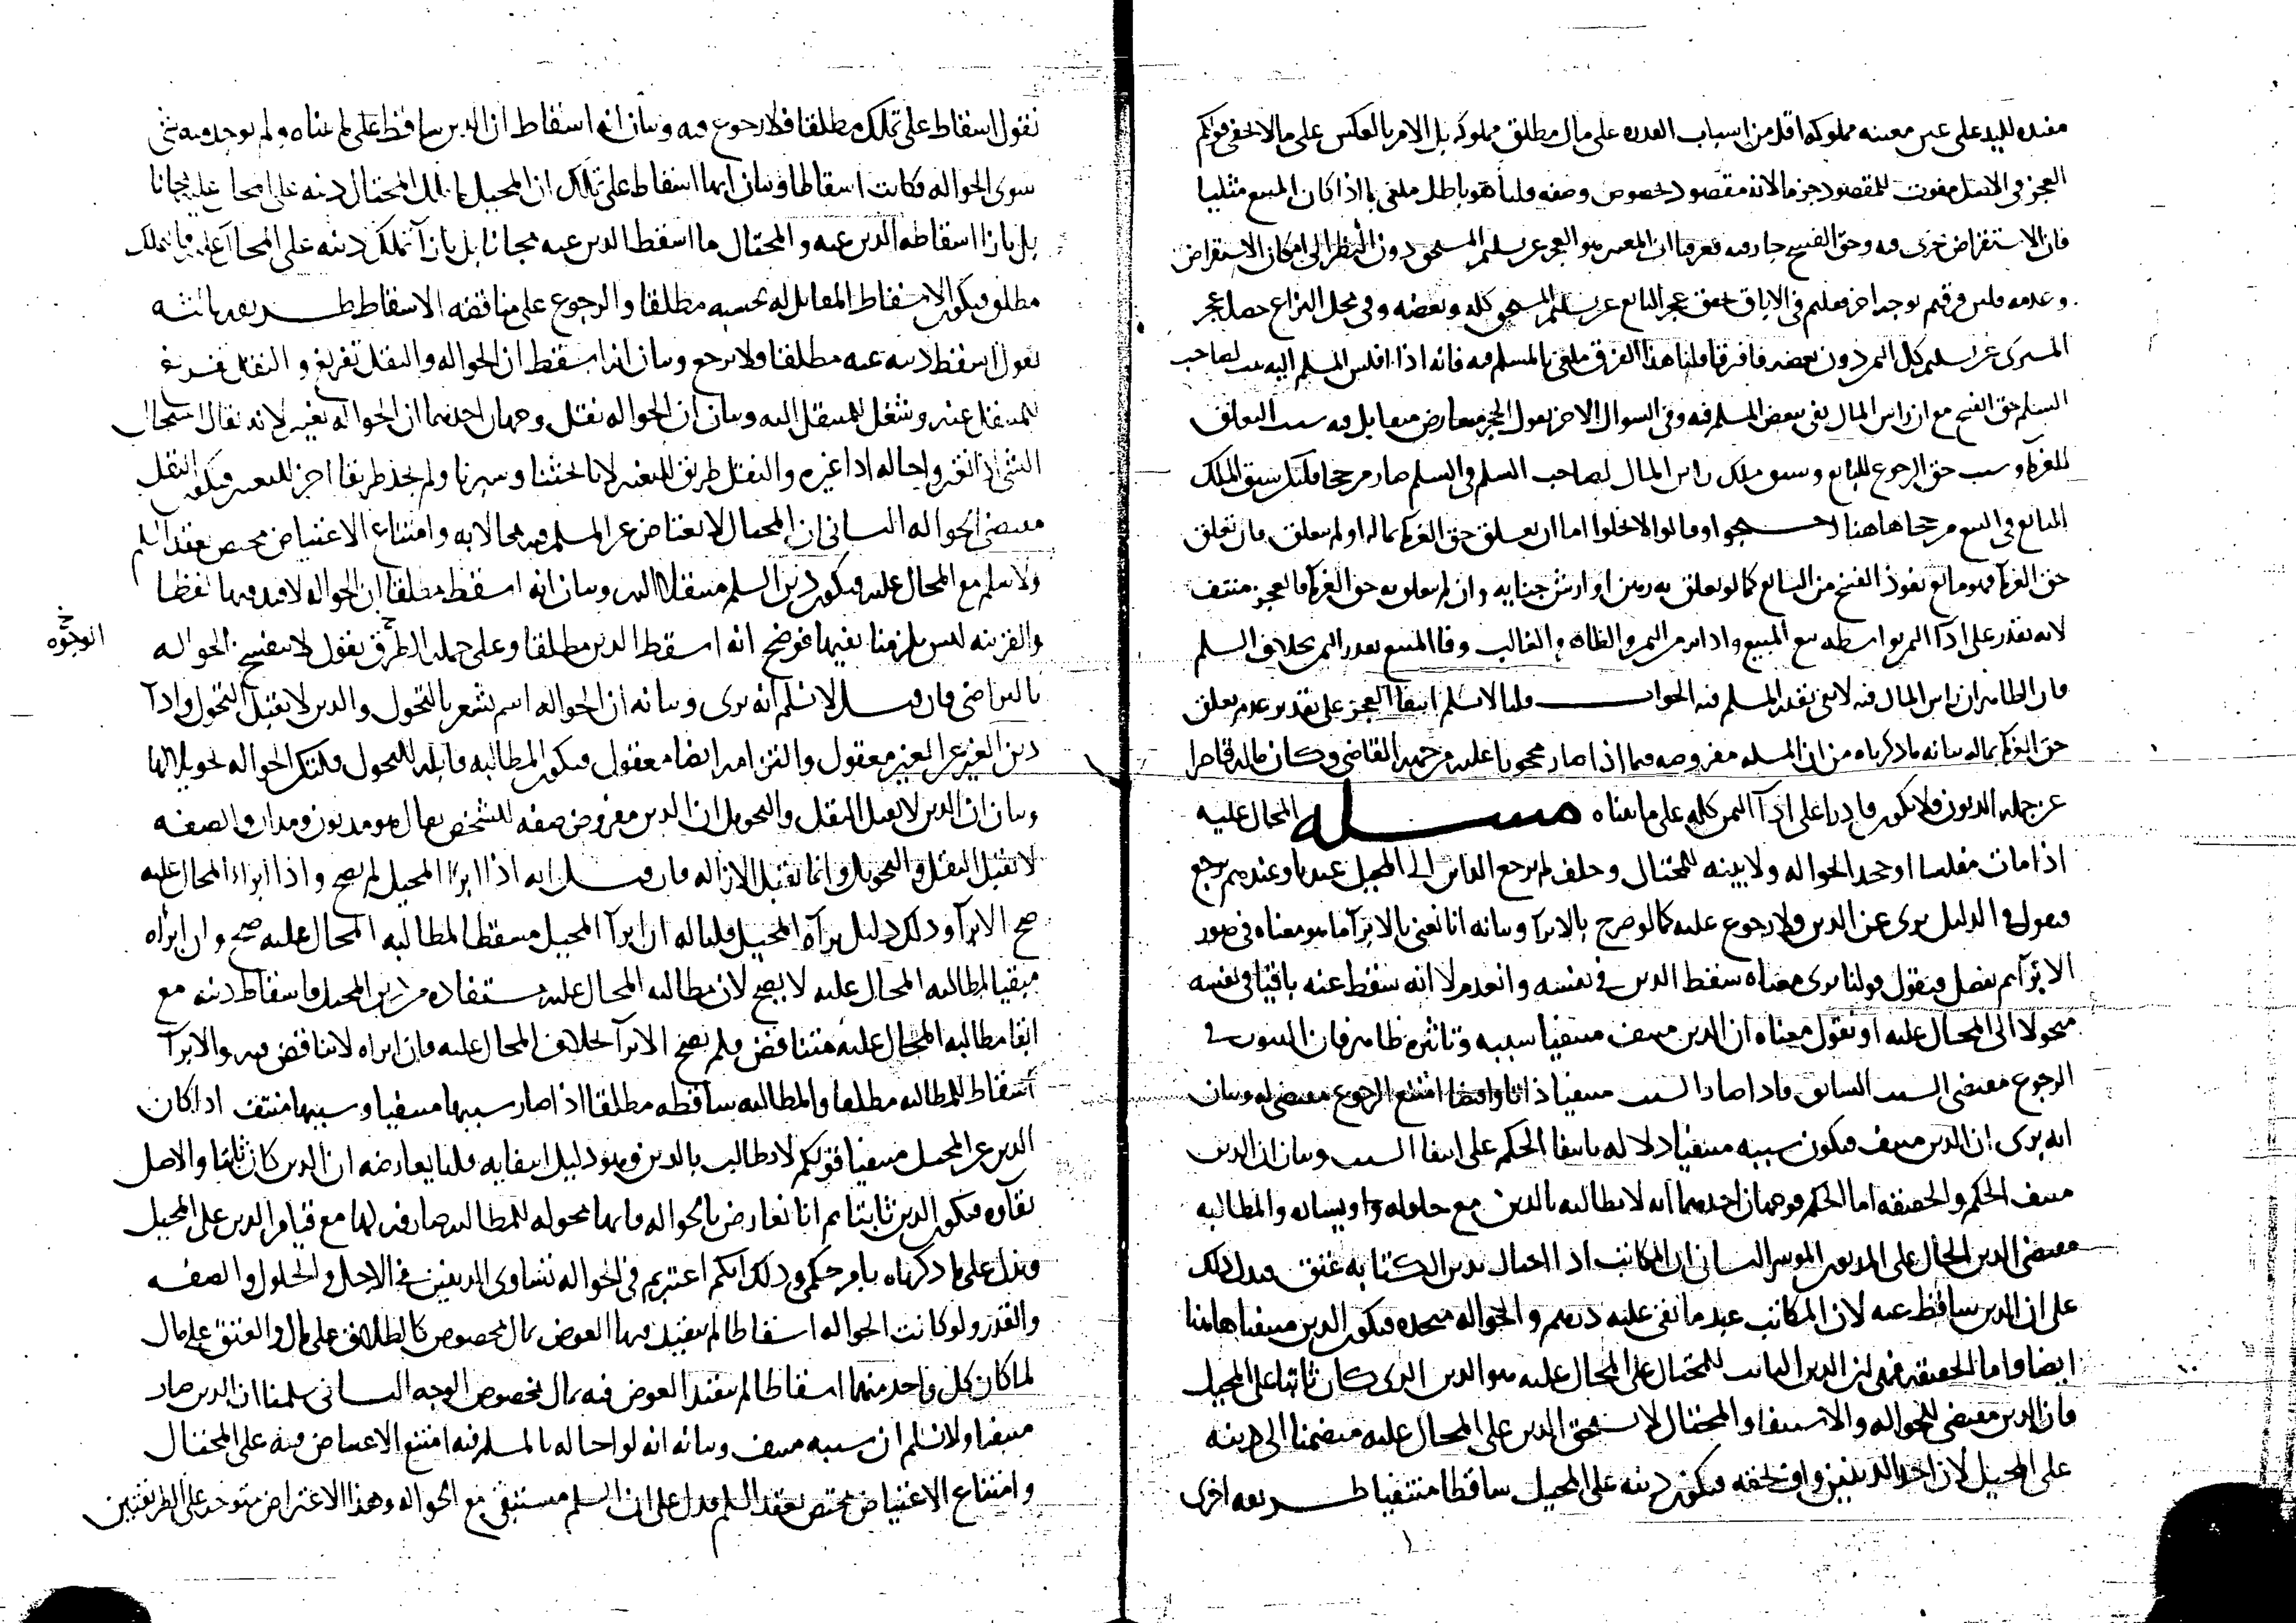 مفيده لليد على عين معينه مملوكه اقل من اسباب القدره على مال مطلق مملوكه بل الامر بالعكس على ما لا يخفى قولكم
العجز فى الاصل مفوت للمقصود جزما لانه مقصود لخصوص وصفه قلنا هو باطل ملغى بما اذا كان المبيع مثليا
فان الاستقراض يجرى فيه وحق الفسخ جار فيه فعرفنا ان المعتبر هو العجز عن تسليم المستحق دون النظر الى امكان الاستقراض
وعدمه قلتم فرقتم بوجه اخر فعليكم فى الاباق تحقق عجز البائع عن تسليم المستحق كله وبعضه وفى محل النزاع حصل عجز
المشترى عن تسليم كل الثمن دون بعضه فافترقا قلنا هذا الفرق ملغى بالمسلم فيه فانه اذا افلس المسلم اليه ثبت لصاحب
السلم حق الفسخ مع ان راس المال بقى ببعض المسلم فيه وفى السوال الاخر يقول الحجر معارض مقابل فيه سبب التعلق
للغرماء وسبب حق الرجوع للبائع وسبق ملك راس المال لصاحب السلم فى السلم صار مرجحا فليكن سبق الملك
البائع فى البيع مرجحا هاهنا احتجوا وقالوا لا يخلوا اما ان يتعلق حق الغرماء بماله او لم يتعلق فان تعلق
حق الغرماء فهو مانع نفوذ الفسخ من البائع كما لو تعلق به رهن او ارش جنايه وان لم يتعلق به حق الغرماء فالعجز منتف
لانه يقدر على ادآ الثمن بواسطه بيع المبيع وادائه من الثمن والظاهر والغالب وفا المبيع بقدر الثمن بخلاف السلم
فان الظاهر ان راس المال فيه لا يفى بقدر المسلم فيه الجواب قلنا لا نسلم انتفا العجز على تقدير عدم تعلق
حق الغرماء بماله بيانه ما ذكرناه من ان المسله مفروضه فيما اذا صار محجورا عليه من جهه القاضى وكان ماله قاصرا
عن جمله الديون فلا يكون قادرا على ادآ الثمن كله على ما بيناه مسله المحال عليه
اذا مات مفلسا او جحد الحواله ولا بينه للمحتال وحلف لم يرجع الداين الى المحيل عندنا وعندهم يرجع
فنقول فى الدليل برى عن الدين فلا رجوع عليه كما لو صرح بالابرآ وبيانه انا نعنى بالابرآ ما هو معناه فى صور
الابرآ ثم نفصل فنقول قولنا برى معناه سقط الدين فى نفسه وانعدم لا انه سقط عنه باقيا فى نفسه
متحولا الى المحال عليه او نقول معناه ان الدين منتف منتفيا سببه وتاثيره ظاهر فان الثبوت فى
الرجوع مقتضى السبب السابق فاذا صار السبب منتفيا ذاتا واقتضا امتنع الرجوع مقتضى له وبيان
انه برى ان الدين منتف فيكون سببه منتفيا دلاله بانتفا الحكم على انتفا السبب وبيان ان الدين
منتف الحكم والحقيقه اما الحكم فوجهان احدهما انه لا يطالبه بالدين مع حلوله واويساره والمطالبه
مقتضى الدين الحال على المديون الموسر الثانى ان المكاتب اذا احتال بدين الكتابه عتق فيدل ذلك
على ان الدين ساقط عنه لان المكاتب عبد ما بقى عليه درهم والحواله متحده فيكون الدين منتفيا هاهنا
ايضا واما الحقيقه فهى ان الدين الثابت للمحتال على المحال عليه هو الدين الذى كان ثابتا على المحيل
فان الدين مقتضى للحواله والاستيفا والمحتال لا يستحق الدين على المحال عليه منضما الى دينه
على المحيل لان احد الدينين وافٍ بحقه فيكون دينه على المحيل ساقطا منتفيا طريقه اخرى
نقول اسقاط على تملك مطلقا فلا رجوع فيه وبيان انه اسقاط ان الدين ساقط على ما بيناه ولم يوجد فيه شى
سوى الحواله فكانت اسقاطا وبيان انها اسقاط على تملك ان المحيل ما ملك المحتال دينه على المحال عليه مجانا
بل بازا اسقاطه الدين عنه والمحتال ما اسقط الدين عنه مجانا بل بازآ تملك دينه على المحال عليه
مطلق فيكون الاسقاط المقابل له بحسبه مطلقا والرجوع على مناقضه الاسقاط طريقه ثالثه
نقول اسقط دينه عنه مطلقا ولا يرجع وبيان انه اسقط ان الحواله والنقل تفريغ والنقل تفريغ
للمنتقل عنه وشغل للمنتقل اليه وبيان ان الحواله نقل وجهان احدهما ان الحواله تغيير لانه يقال استحال
الشى اذا تغير واحاله اذا غيره والنقل طريق للتغيير لانا بحثنا وسبرنا ولم نجد طريقا اخر للتغيير فيكون النقل
مقتضى الحواله الثانى ان المحتال لا يعتاض عن المسلم فيه محالا به وامتناع الاعتياض مختص بعقد السلم
ولا سلم مع المحال عليه فيكون دين السلم منتقلا اليه وبيان انه اسقط مطلقا ان الحواله لا قيد فيها لفظا
والقرينه ليس يلزمنا نفيها فوضح انه اسقط الدين مطلقا وعلى جمله الطرق نقول لا ينفسخ الحواله
الوجوه
بالتراضى فان قيل لا نسلم انه برى وبيانه ان الحواله اسم يشعر بالتحول والدين لا يقبل التحول وادآ
دين الغير عن الغير معقول والتزامه ايضا معقول فيكون المطالبه قابله للتحول فلتكن الحواله تحويلا لها
وبيان ان الدين لا يقبل النقل والتحويل ان الدين مفروض صفه للشخص يقال هو مديون ومدان والصفه
لا تقبل النقل والتحويل وانما تقبل الازاله فان قيل انه اذا ابرا المحيل لم يصح واذا ابراء المحال عليه
صح الابرآ وذلك دليل برآه المحيل قلنا له ان ابرآ المحيل مسقط المطالبه المحال عليه صح وان ابراه
مبقيا لمطالبه المحال عليه لا يصح لان مطالبه المحال عليه مستفاده من دين المحيل فاسقاط دينه مع
ابقا مطالبه المحال عليه متناقض فلم يصح الابرآ بخلاف المحال عليه فان ابراه لا تناقض فيه والابرآ
اسقاط للمطالبه مطلقا والمطالبه ساقطه مطلقا اذا صار سببها منتفيا وسببها منتف اذا كان
الدين عن المحيل منتفيا قولكم لا يطالب بالدين وهو دليل انتفايه قلنا يعارضه ان الدين كان ثابتا والاصل
بقاوه فيكون الدين ثابتا ثم انا نعارض بالحواله فانها محوله للمطالبه صارفه لها مع قيام الدين على المحيل
ويدل على ما ذكرناه بامر حكمى وذلك انكم اعتبرتم فى الحواله تساوى الدينين فى الاجل والحلول والصفه
والقدر ولو كانت الحواله اسقاطا لم يتقيد فيها العوض بمال مخصوص كالطلاق على مال والعتق على مال
لما كان كل واحد منهما اسقاطا لم يتقيد العوض فيه بمال مخصوص الوجه الثانى سلمنا ان الدين صار
منتفيا ولا نسلم ان سببه منتف وبيانه انه لو احاله بالمسلم فيه امتنع الاعتياض فيه على المحتال
وامتناع الاعتياض مختص بعقد السلم فدل على ان السلم مستبقى مع الحواله وهذا الاعتراض متوجه على الطريقتين